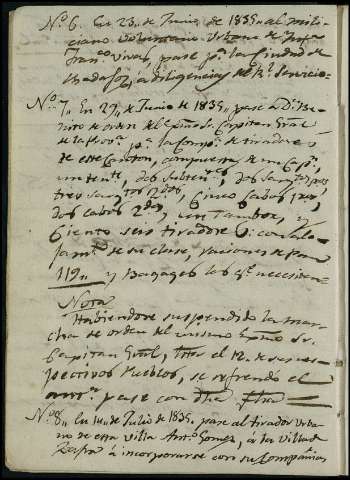 Nº 6. En 23,, de Junio de 1835,, al mili-
ciano Voluntario Urbano de
Franco. Vivas, pase pa. la Ciudad de
Badajoz, a diligencias del Rl. Servicio.
Nº 7,, En 29,, de Junio de 1835,, pase a Dn.
de orden del Sr. Capitan Gral.
pa. la Compa. de tiradores
de este Canton, compuesta de un Capn.,
un tente., dos subtens., dos Sargtos. pros.
tres sargtos. 2dos., cinco cabos pros.
dos cabos 2dos., un Tambor, y
Ciento seis tiradores con aloja-
de su clase, raciones de pan
119,, y Bagages los qe. necesiten
Nota
Habiendose suspendido la mar-
cha de orden del mismo Sr.
Capitan Gral., de sus res-
pectivos Pueblos, se refrendo el
antr. pase con dha. fha.
Nº 8,, En 14,, de Julio de 1835. pase al tirador Urba-
no de esta villa Anto. Gomez, a la Villa de
Zafra a incorporarse con su Compañia